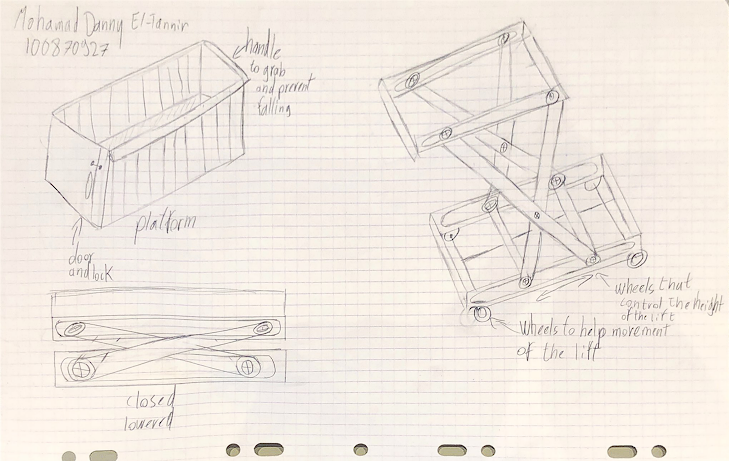 Mohamad Danny El-Tannir
100870927
handle
to grab
and prevent
falling
platform
door
and lock
closed
lowered
wheels that
control the height
of the lift
Wheels to help movement
of the lift